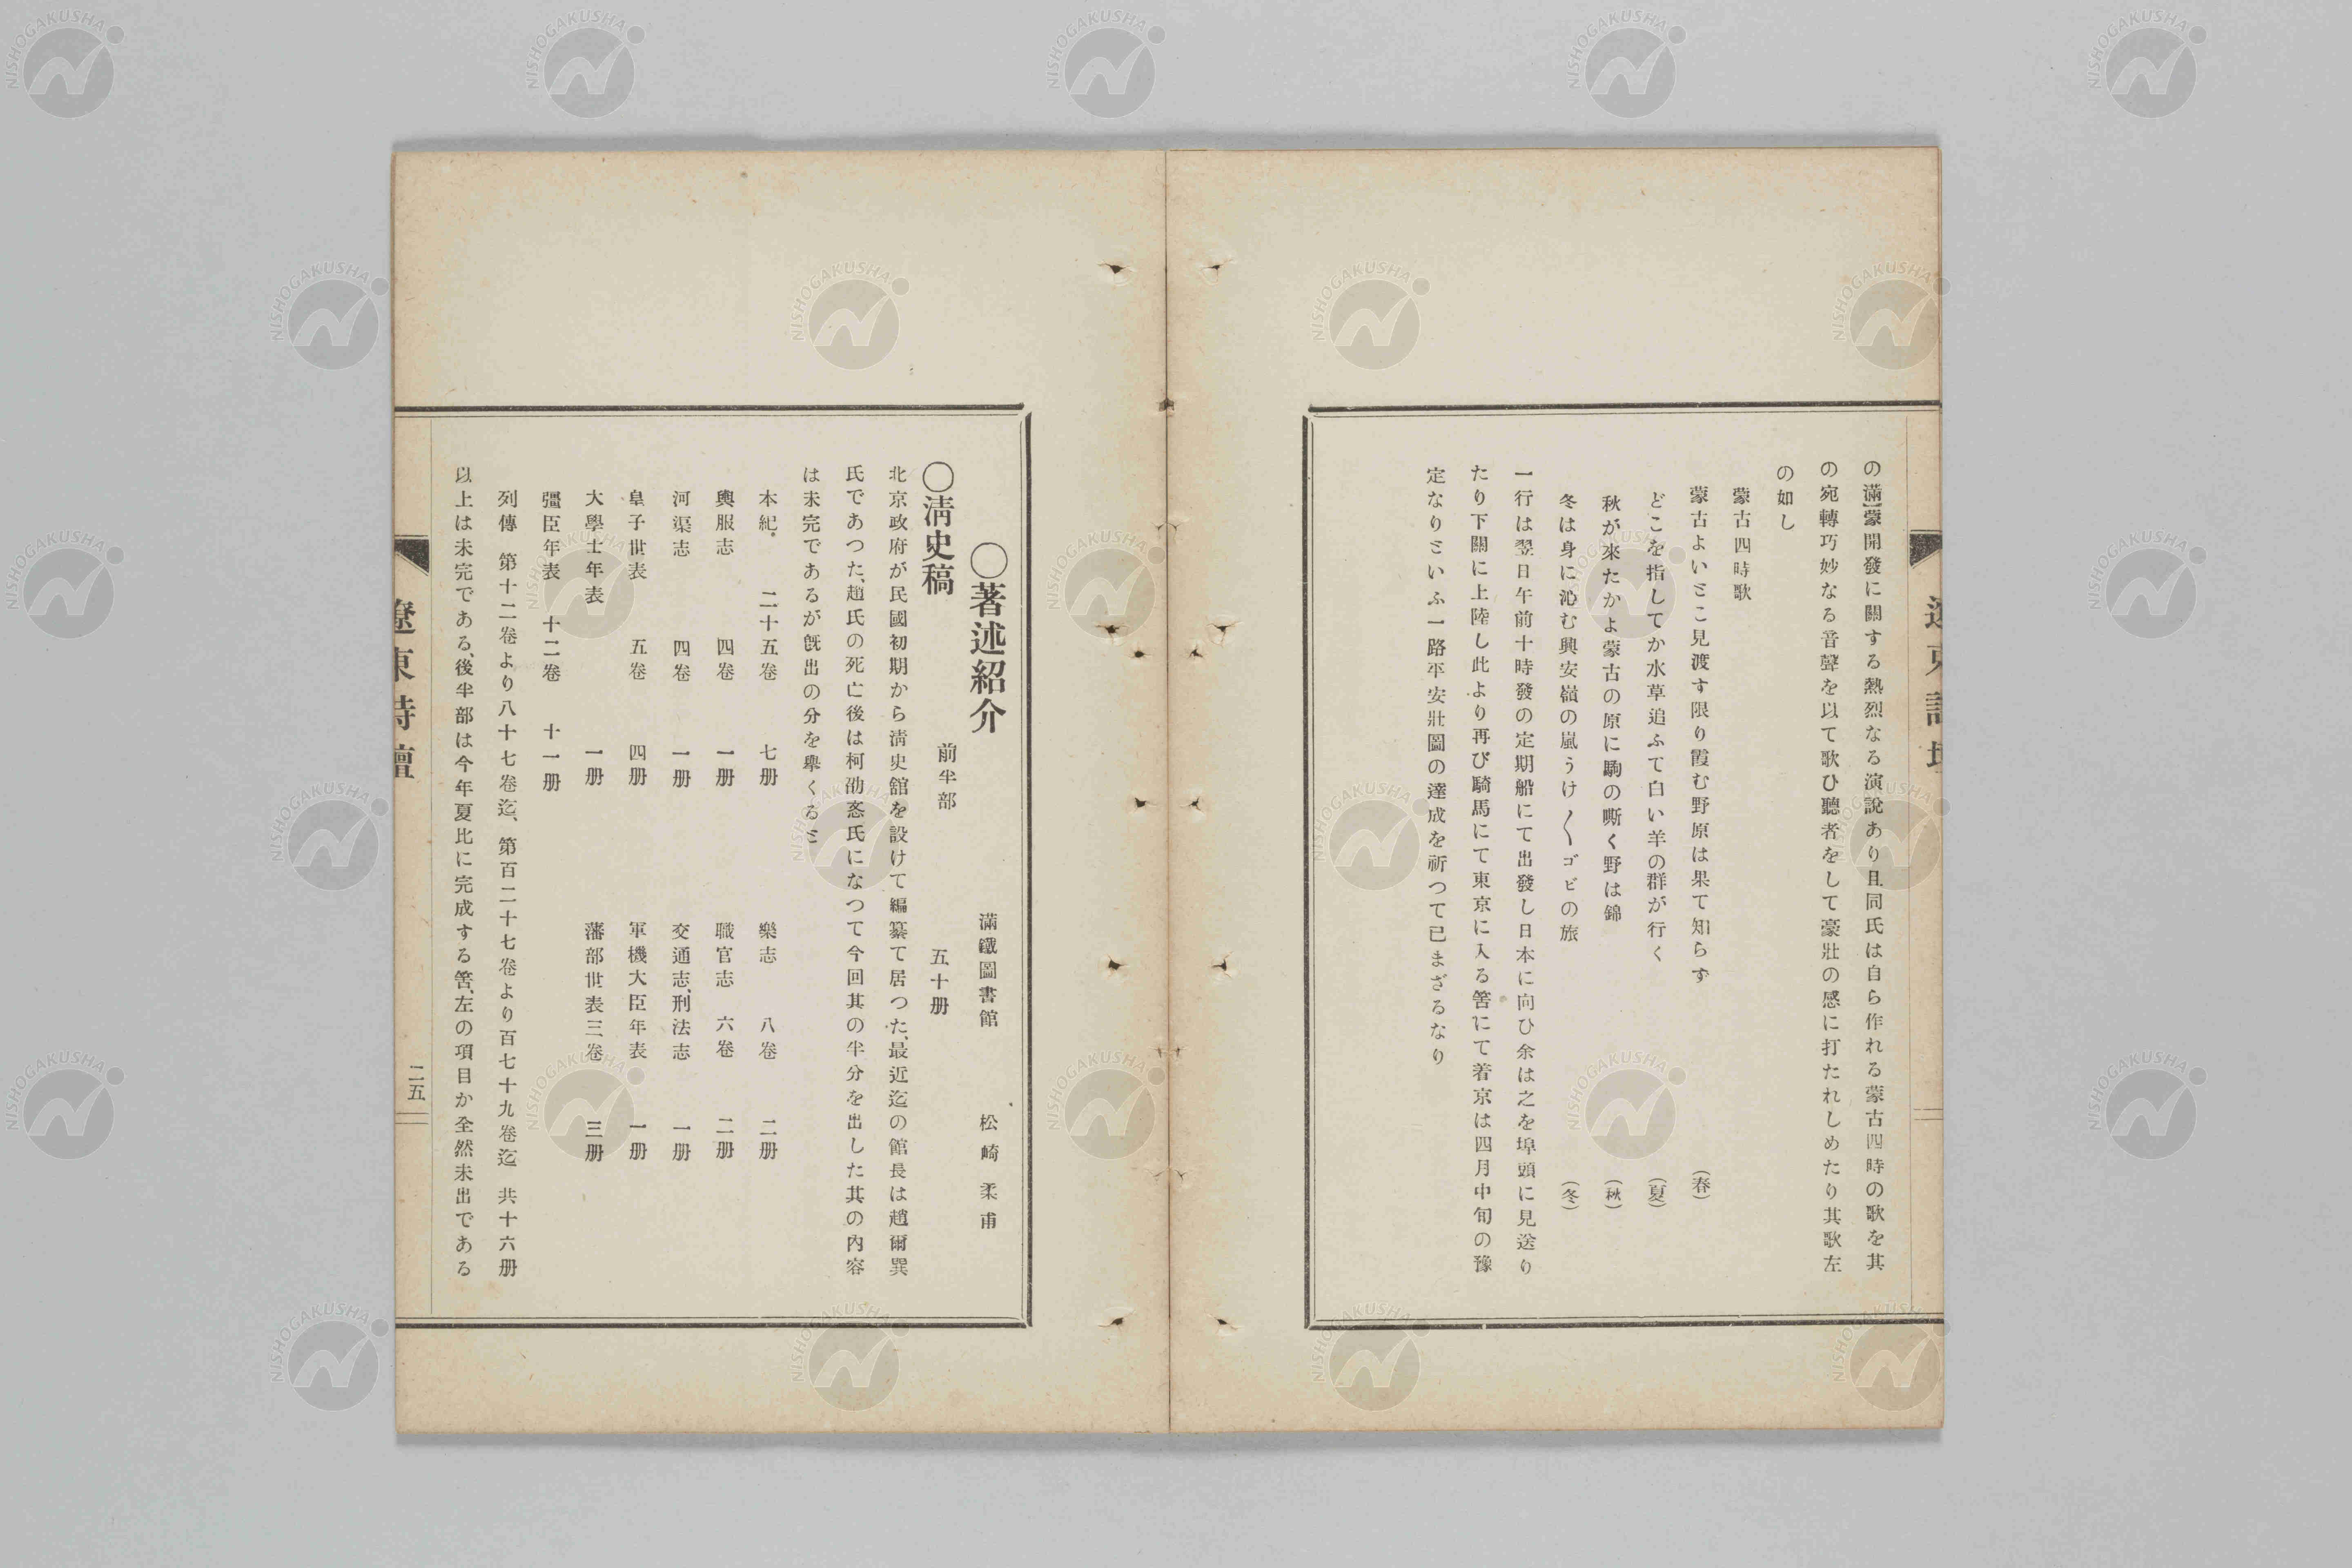 の滿蒙開發に關する熱烈なる演說あり且同氏は自ら作れる蒙古四時の歌を其
の宛轉巧妙なる音聲を以て歌ひ聽者をして豪壯の感に打たれしめたり其歌左
の如し
蒙古四時歌
蒙古よいとこ見渡す限り霞む野原は果て知らず (春)
どこを指してか水草追ふて白い羊の群が行く (夏)
秋が來たかよ蒙古の原に駒の嘶く野は錦 (秋)
冬は身に沁む興安嶺の嵐うけ〱ゴビの旅 (冬)
一行は翌日午前十時發の定期船にて出發し日本に向ひ余は之を埠頭に見送り
たり下關に上陸し此より再び騎馬にて東京に入る筈にて着京は四月中旬の豫
定なりといふ一路平安壯圖の達成を祈つて已まざるなり
〇著述紹介 滿鐵圖書館 松崎柔甫
〇淸史稿 前半部 五十册
北京政府が民國初期から淸史館を設けて編纂て居つた、最近迄の館長は趙爾巽
氏であつた、趙氏の死亡後は柯劭忞氏になつて今回其の半分を出した其の內容
は未完であるが旣出の分を擧くると
本紀 二十五卷 七册 樂志 八卷 二册
輿服志 四卷 一册 職官志 六卷 二册
河渠志 四卷 一册 交通志、刑法志 一册
皇子世表 五卷 四册 軍機大臣年表 一册
大學士年表 一册 藩部世表三卷 三册
彊臣年表 十二卷 十一册
列傳 第十二卷より八十七卷迄、第百二十七卷より百七十九卷迄 共十六册
以上は未完である、後半部は今年夏比に完成する筈、左の項目か全然未出である
遼東詩壇 二五
NISHOGAKUSHA